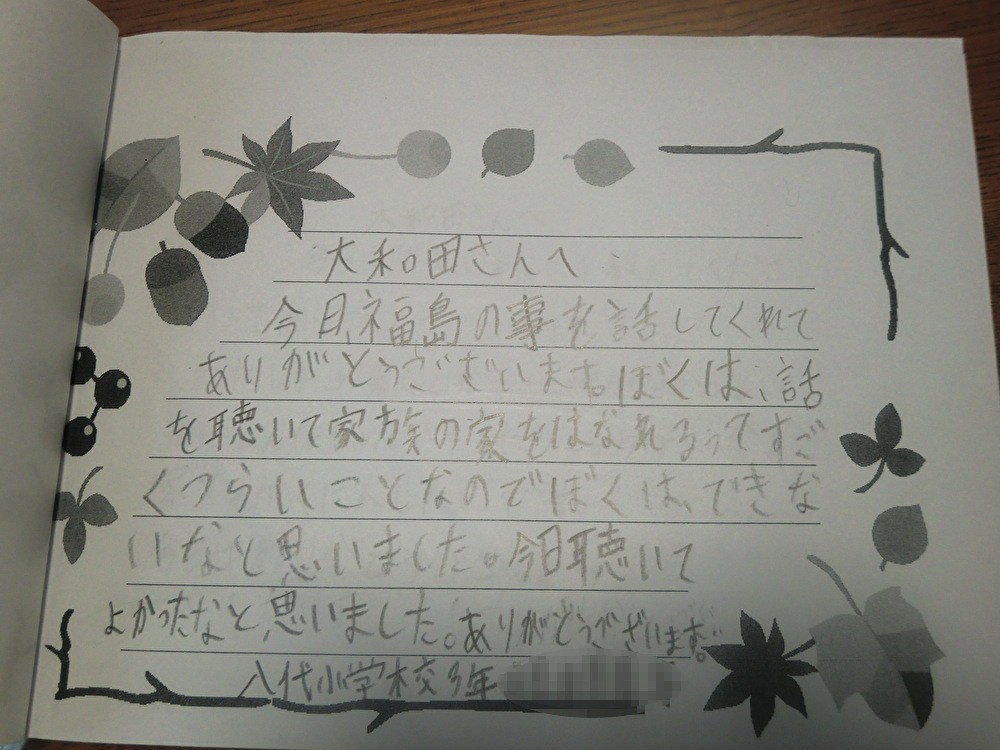 大和田さんへ
今日、福島の事を話してくれて
ありがとうございます。ぼくは、話
を聴いて家族の家をはなれるってすご
くつらいことなのでぼくは、できな
いなと思いました。今日聴いて
よかったなと、思いました。ありがとうございます。
八代小学校3年